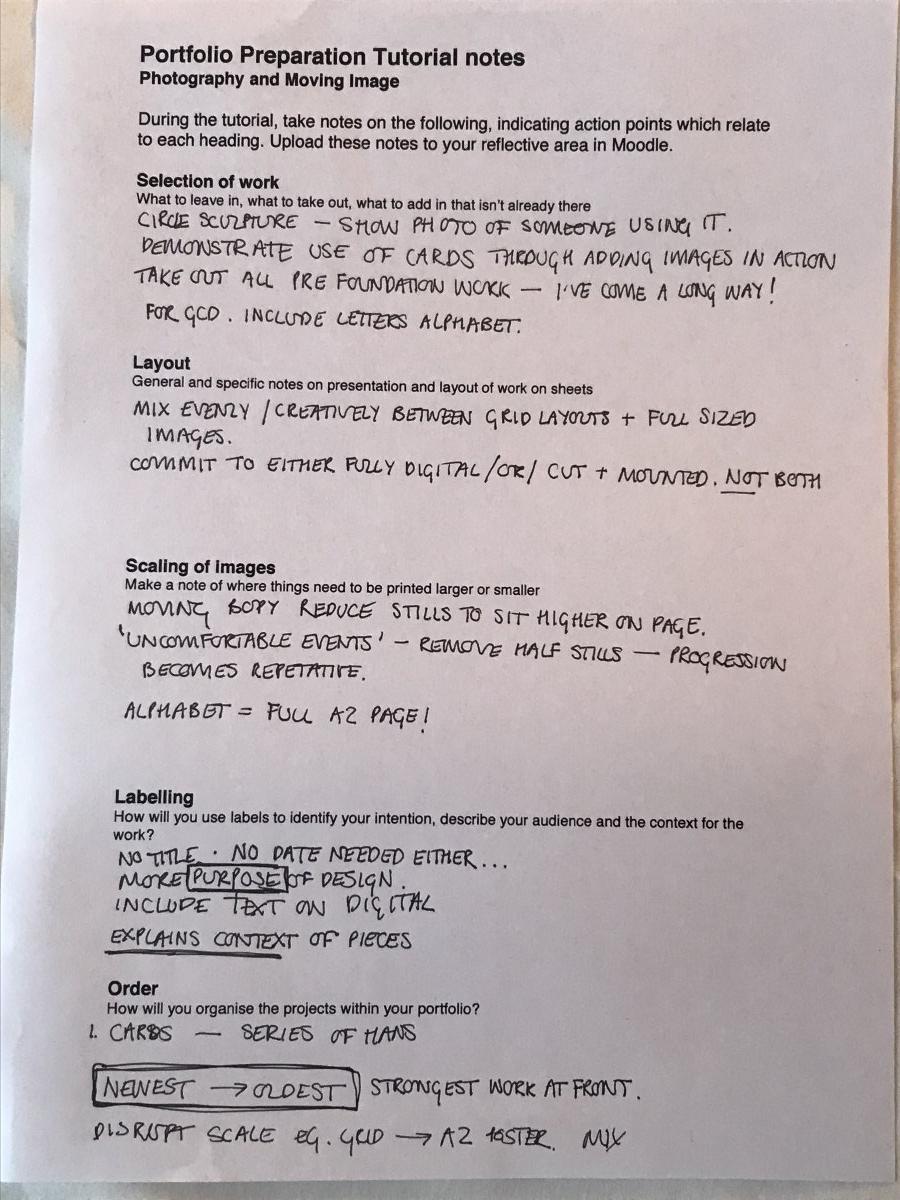 Portfolio Preparation Tutorial notes
Photography and Moving Image
During the tutorial, take notes on the following, indicating action points which relate
to each heading. Upload these notes to your reflective area in Moodle.
Selection of work
What to leave in, what to take out, what to add in that isn't already there
CIRCLE SCULPTURE – SHOW PHOTO OF SOMEONE USING IT.
DEMONSTRATE USE OF CARDS THROUGH ADDING IMAGES IN ACTION
TAKE OUT ALL PRE FOUNDATION WORK – I'VE COME A LONG WAY!
FOR GCD. INCLUDE LETTERS ALPHABET.
Layout
General and specific notes on presentation and layout of work on sheets
MIX EVENLY / CREATIVELY BETWEEN GRID LAYOUTS + FULL SIZED
IMAGES.
COMMIT TO EITHER FULLY DIGITAL /OR/ CUT + MOUNTED. NOT BOTH
Scaling of images
Make a note of where things need to be printed larger or smaller
MOVING BODY REDUCE STILLS TO SIT HIGHER ON PAGE.
'UNCOMFORTABLE EVENTS' – REMOVE HALF STILLS – PROGRESSION
BECOMES REPETATIVE.
ALPHABET = FULL A2 PAGE!
Labelling
How will you use labels to identify your intention, describe your audience and the context for the
work?
NO TITLE . NO DATE NEEDED EITHER...
MORE PURPOSE OF DESIGN.
INCLUDE TEXT ON DIGITAL
EXPLAINS CONTEXT OF PIECES
Order
How will you organise the projects within your portfolio?
1. CARDS – SERIES OF
NEWEST → OLDEST STRONGEST WORK AT FRONT.
DISRUPT SCALE EG. GRID → A2 MIX